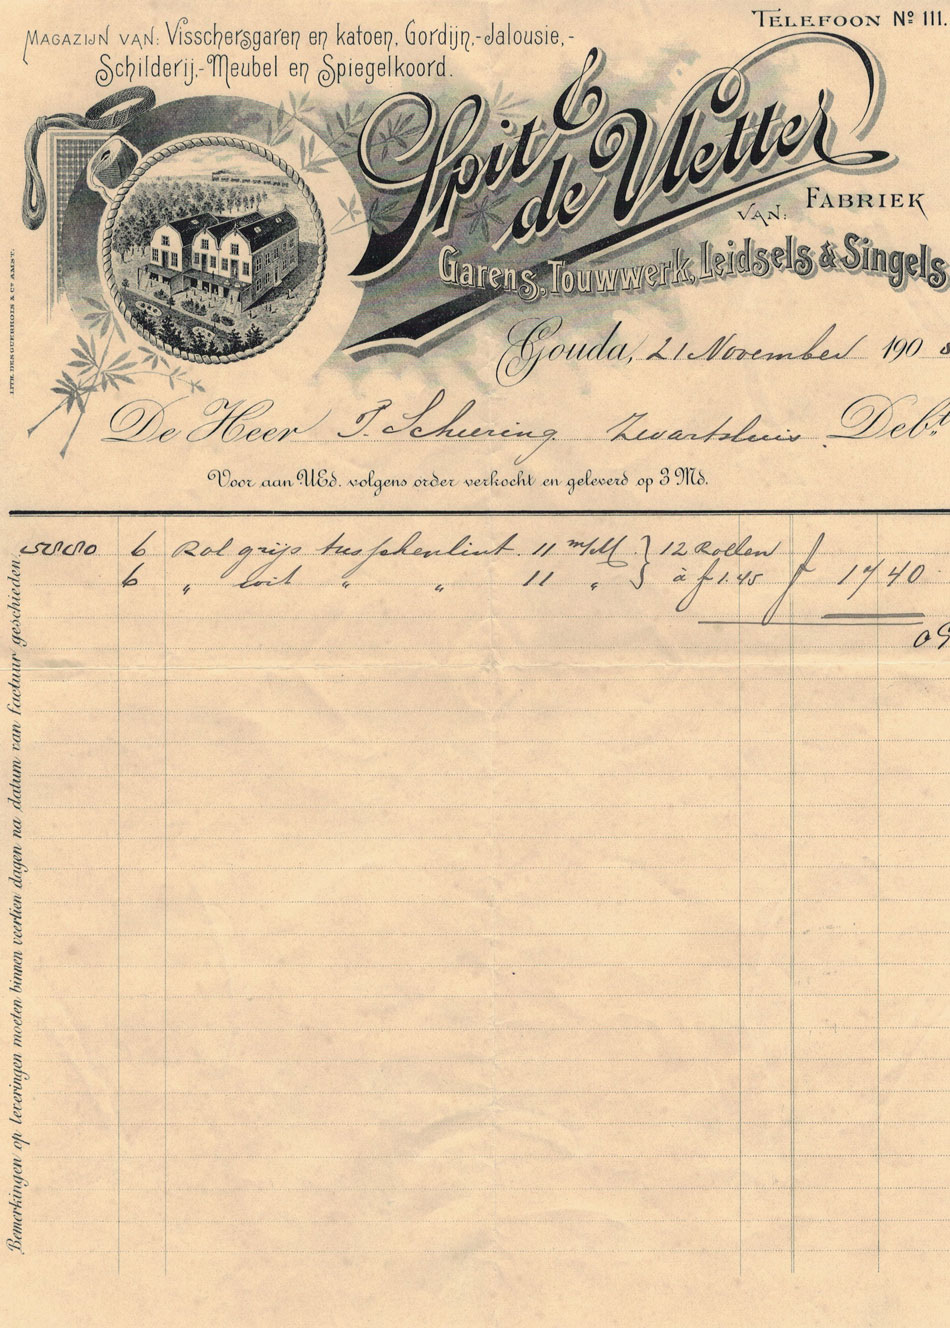 TELEFOON No 111.
MAGAZIJN VAN: Visschersgaren en katoen, Gordijn,-Jalousie,-
Schilderij,-Meubel en Spiegelkoord.
Spit &
de Vletter
FABRIEK
VAN:
Garens, Touwwerk, Leidsels & Singels
Gouda, 21 November 190 8
De Heer Scheering Zwartsluis Debt.
Voor aan UEd. volgens order verkocht en geleverd op 3 Md.
6 Rol grijs tusschenlint. 11 m/M } 12 Rollen
6 " wit " " 11 " } à f 1.45 f 17 40
LITH. DESGUERROIS & Co AMST.
Bemerkingen op leveringen moeten binnen veertien dagen na datum van factuur geschieden.